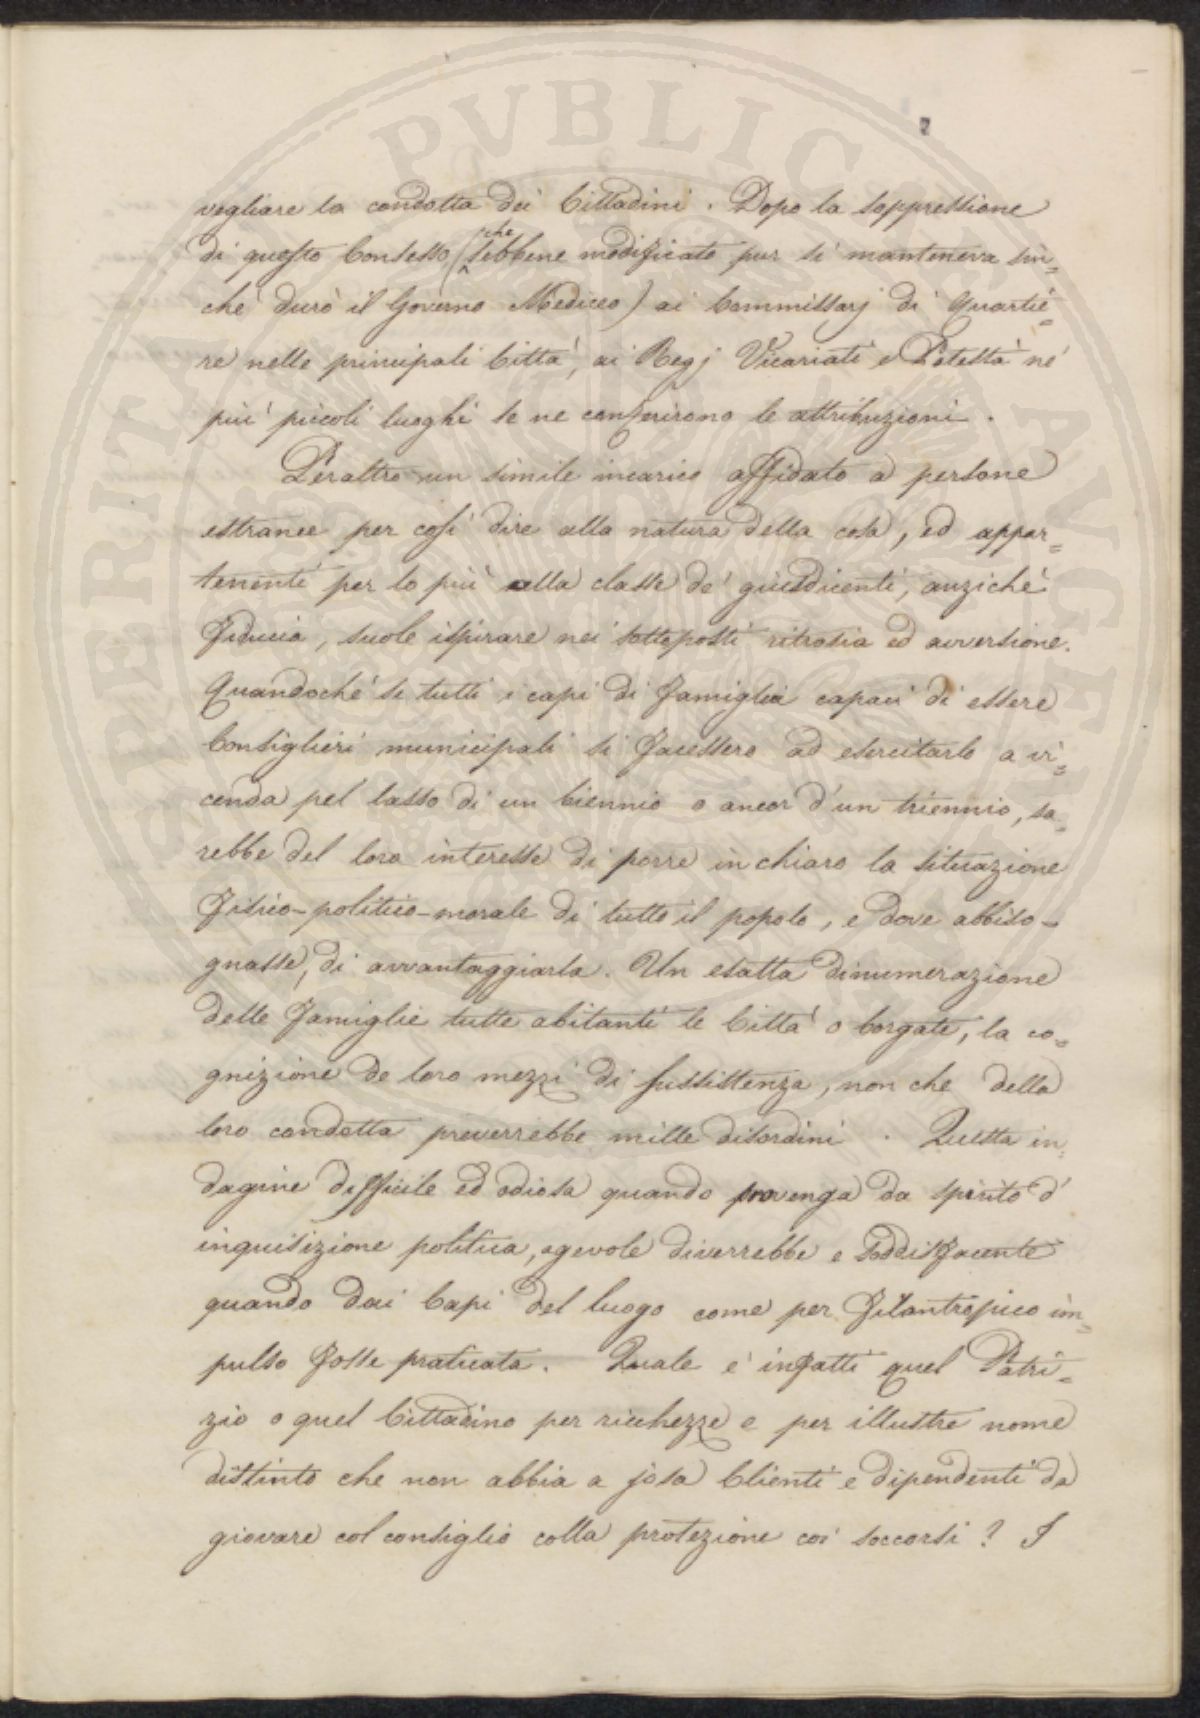 7
vegliare la condotta dei Cittadini. Dopo la soppressione
di questo Consesso (che sebbene modificato pur si manteneva sin=
ché durò il Governo Mediceo) ai Commissarj di Quartie=
re nelle principali Città, ai Regj Vicariati e Potestà ne'
più piccoli luoghi se ne conferirono le attribuzioni.
Peraltro un simile incarico affidato a persone
estranee per così dire alla natura della cosa, ed appar=
tenenti per lo più alla classe de' giusdicenti, anziché
fiducia, suole ispirare nei sottoposti ritrosia ed avversione.
Quandoché se tutti i capi di famiglia capaci di essere
Consiglieri municipali si facessero ad esercitarlo a vi=
cenda pel lasso di un biennio o ancor d'un triennio, sa=
rebbe del loro interesse di porre in chiaro la situazione
fisico-politico-morale di tutto il popolo, e dove abbiso=
gnasse, di avvantaggiarla. Un esatta dinumerazione
delle famiglie tutte abitanti le Città o borgate, la co=
gnizione de loro mezzi di sussistenza, non che della
loro condotta preverrebbe mille disordini. Questa in=
dagine difficile ed odiosa quando provenga da spirito d'
inquisizione politica, agevole diverrebbe e soddisfacente
quando dai Capi del luogo come per filantropico im=
pulso fosse praticata. Quale è infatti quel Patri=
zio o quel Cittadino per ricchezze e per illustre nome
distinto che non abbia a josa Clienti e dipendenti da
giovare col consiglio colla protezione coi soccorsi? I
SPERITAS PVBLICA AVGE